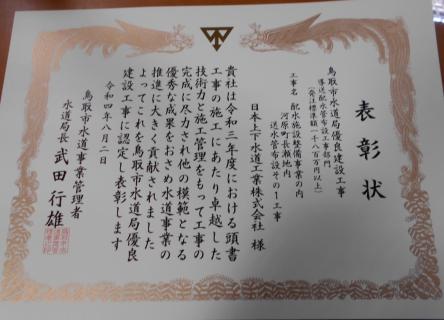 表彰状
鳥取市水道局優良建設工事
導送配水管布設工事部門
(発注標準額一千八百万円以上)
工事名 配水施設整備事業の内
河原町長瀬地内
送水管布設その1工事
日本上下水道工業株式会社 様
貴社は令和三年度における頭書
工事の施工にあたり卓越した
技術力と施工管理をもって工事の
完成に尽力され他の模範となる
優秀な成果をおさめ水道事業の
推進に大きく貢献されました
よってこれを鳥取市水道局優良
建設工事に認定し表彰します
令和四年八月二日
鳥取市水道事業管理者
水道局長 武田行雄